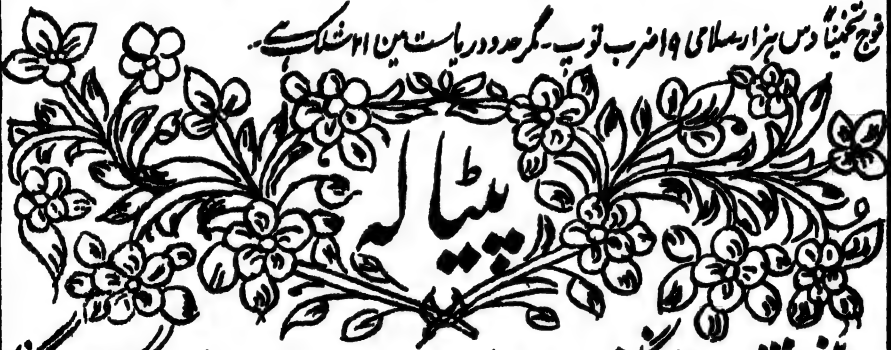 فوج تخمیناً دس ہزار سلامی ۱۹ ضرب توپ - مگر حدود ریاست مین ۲۱ شلک ہے۔
پٹیالہ